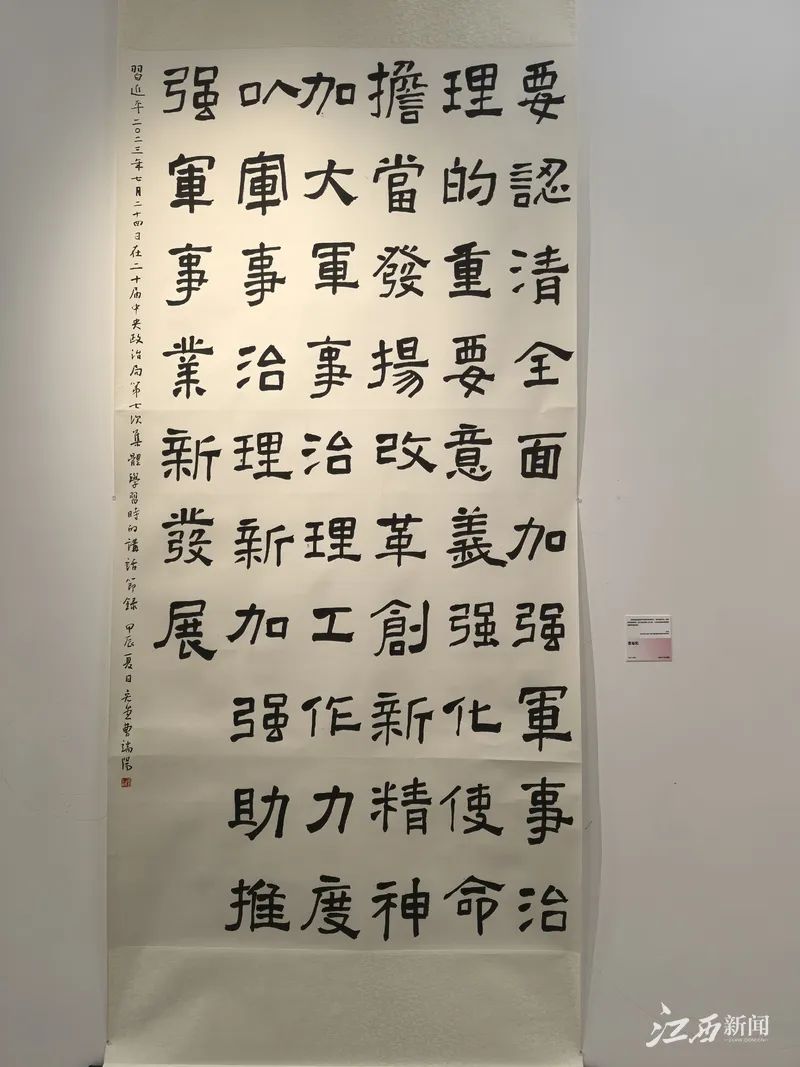 要認清全面加强軍事治
理的重要意義强化使命
擔當發揚改革創新精神
加大軍事治理工作力度
以軍事治理新加强助推
强軍事業新發展
習近平二〇二三年七月二十四日在二十届中央政治局第七次集體學習時的講話節録 甲辰夏日 曹端陽
江西新闻